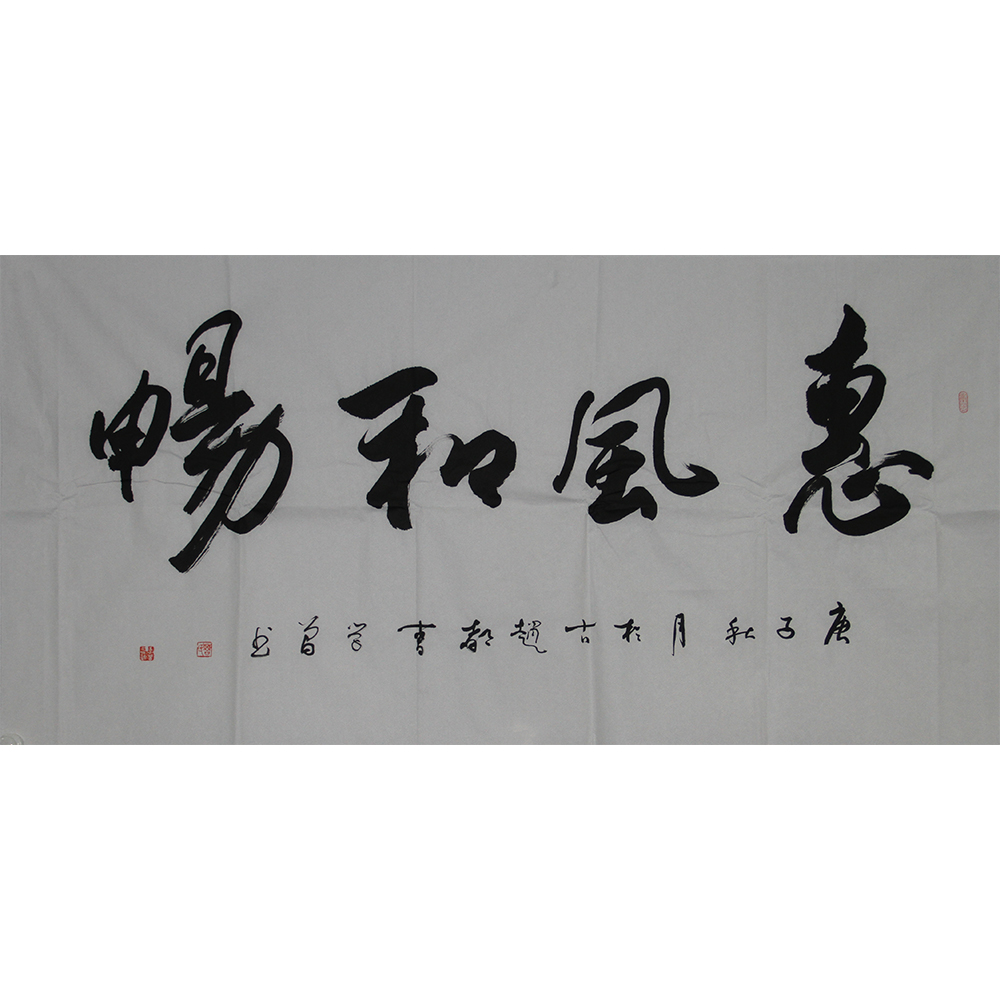 惠風和暢
庚子秋月於古趙都書學曾出